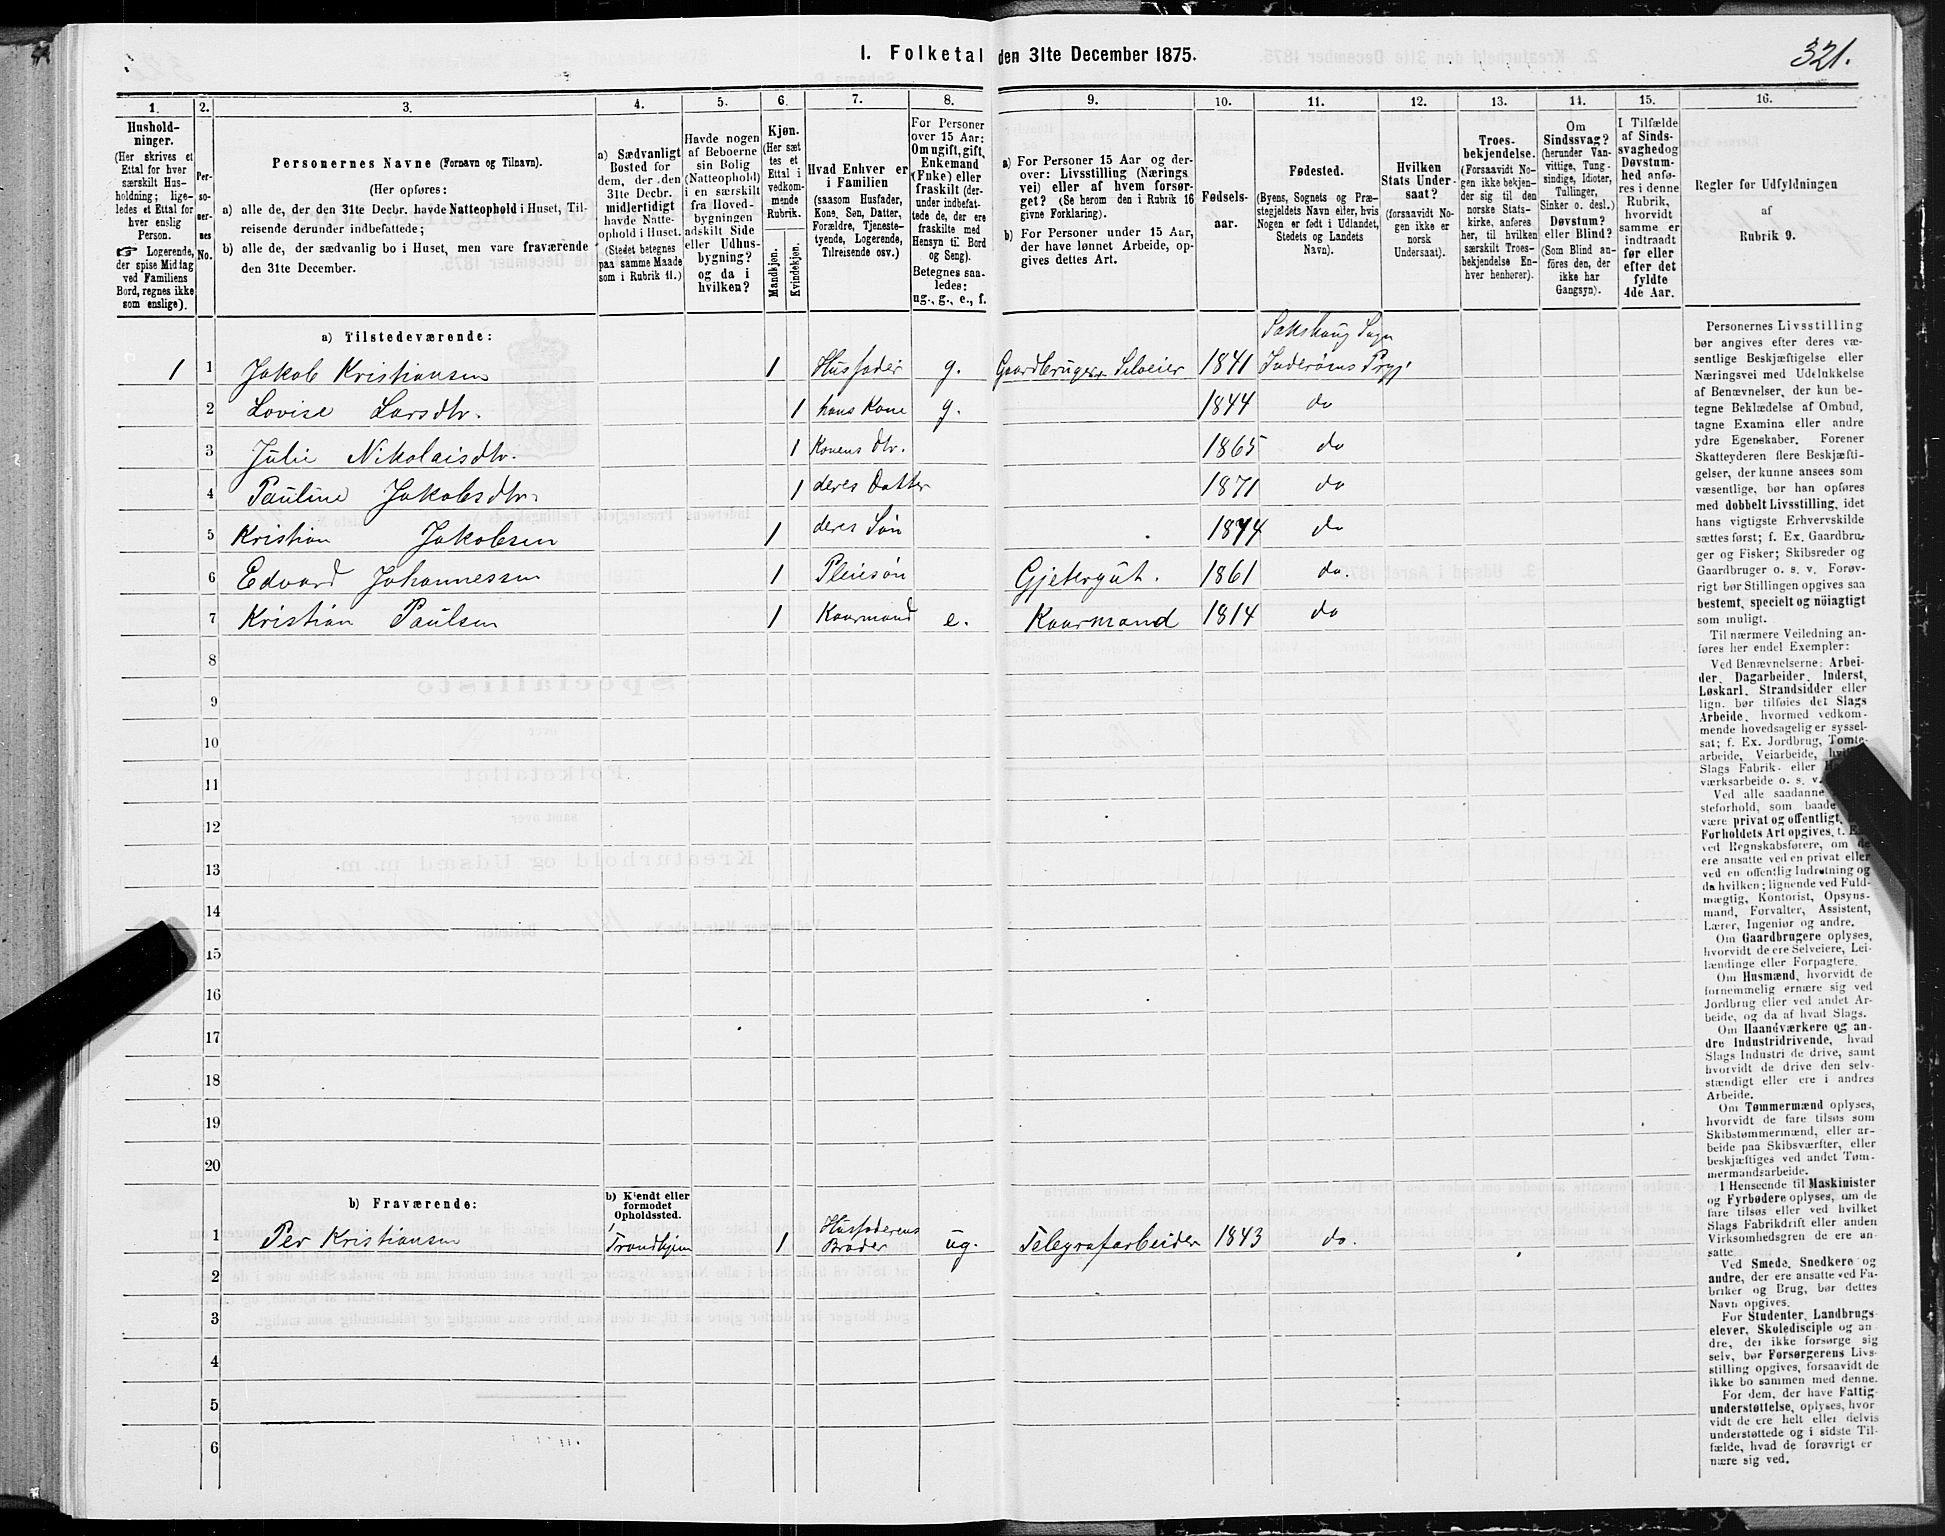 I. Folketal den 31te December 1875.
321.
1.
2.
3.
4.
5.
6.
7.
8.
9.
10.
11.
12.
13.
14.
15.
16.
Hushold-
ninger.
(Her skrives et
Ettal for hver
særskilt Hus-
holdning; lige-
ledes et Ettal for
hver enslig
Person.
☞ Logerende,
der spise Middag
ved Familiens
Bord, regnes ikke
som enslige).
Per-
so-
ner-
nes
No.
Personernes Navne (Fornavn og Tilnavn).
(Her opføres:
a) alle de, der den 31te Decbr. havde Natteophold i Huset, Til-
reisende derunder indbefattede;
b) alle de, der sædvanlig bo i Huset, men vare fraværende
den 31te December.
a) Sædvanligt
Bosted for
dem, der den
31te Decbr.
midlertidigt
havde Natte-
ophold i Huset.
(Stedet betegnes
paa samme Maade
som i Rubrik 11.)
Havde nogen
af Beboerne
sin Bolig
(Natteophold)
i en særskilt
fra Hoved-
bygningen
adskilt Side
eller Udhus-
bygning?
og da i
hvilken?
Kjøn.
(Her sæt
tes et
Ettal i
vedkom-
mende
Rubrik.
Mandkjøn.
Kvindekjøn.
Hvad Enhver er
i Familien
(saasom Husfader,
Kone, Søn, Datter,
Forældre, Tjeneste-
tyende, Logerende,
Tilreisende osv.)
For Personer
over 15 Aar:
Om ugift, gift,
Enkemand
(Enke) eller
fraskilt (der-
under indbefat-
tede de, der ere
fraskilte med
Hensyn til Bord
og Seng).
Betegnes saa-
ledes:
ug., g., e., f.
a) For Personer 15 Aar og der-
over: Livsstilling (Nærings
vei) eller af hvem forsør-
get? (Se herom den i Rubrik 16
givne Forklaring).
b) For Personer under 15 Aar,
der have lønnet Arbeide, op-
gives dettes Art.
Fødsels-
aar.
Fødested.
(Byens, Sognets og Præ-
stegjeldets Navn eller, hvis
Nogen er født i Udlandet,
Stedets og Landets
Navn).
Hvilken
Stats Under-
saat?
(forsaavidt No-
gen ikke er
norsk
Undersaat).
Troes-
bekjendelse.
(Forsaavidt No-
gen ikke bekjen-
der sig til den
norske Stats-
kirke, anføres
her, til hvilken
særskilt Troes-
bekjendelse En-
hver henhører).
Om
Sindssvag?
(herunder Van-
vittige, Tung-
sindige, Idioter,
Tullinger,
Sinker o. desl.)
Døvstum?
eller Blind?
(Som Blind an-
føres den, der
ikke har
Gangsyn).
I Tilfælde
af Sinds-
svaghed og
Døvstum-
hed anfø-
res i denne
Rubrik,
hvorvidt
samme er
indtraadt
før eller
efter det
fyldte
4de Aar.
Regler før Udfyldningen
af
Rubrik 9.
a) Tilstedeværende:
Sakshaug Sogn
1 1 Jakob Kristiansen 1 Husfader g. Gaardbruger Selveier 1841 Inderøens Prgj.
2 Lovise Larsdtr. 1 hans Kone g. 1844 do
3 Julie Nikolaisdtr. 1 Konens dtr. 1865 do
4 Pauline Jakobsdtr. 1 deres Datter 1871 do
5 Kristian Jakobsen 1 deres Søn 1874 do
6 Edvard Johannessen 1 Pleiesøn Gjetergut. 1861 do
7 Kristian Paulsen 1 Kaarmand e. Kaarmand 1814 do
8
9
10
11
12
13
14
15
16
17
18
19
20
b) Fraværende:
b) Kjendt eller
formodet
Opholdssted.
1 Per Kristiansen Trondhjem 1 Husfaderens Broder ug. Telegrafarbeider 1843 do.
2
3
4
5
6
Personernes Livsstilling
bør angives efter deres væ-
sentlige Beskjæftigelse eller
Næringsvei med Udelukkelse
af Benævnelser, der kun be-
tegne Beklædelse af Ombud,
tagne Examina eller andre
ydre Egenskaber. Forener
Skatteyderen flere Beskjæfti-
gelser, der kunne ansees som
væsentlige, bør han opføres
med dobbelt Livsstilling, idet
hans vigtigste Erhvervskilde
sættes først; f. Ex. Gaardbru-
ger og Fisker; Skibsreder og
Gaardbruger o. s. v. Forøv-
rigt bør Stillingen opgives saa
bestemt, specielt og nöiagtigt
som muligt.
Til nærmere Veiledning an-
føres her endel Exempler:
Ved Benævnelserne: Arbei-
der, Dagarbeider, Inderst,
Løskarl, Strandsidder eller
lign. bør tilføies det Slags
Arbeide, hvormed vedkom-
mende hovedsagelig er syssel-
sat; f. Ex. Jordbrug, Tomte-
arbeide, Veiarbeide,
Slags Fabrik- eller
værksarbeide o. s. v.
Ved alle saadanne
steforhold, som baade
være privat og offentligt,
Forholdets Art opgives, t. Ex.
ved Regnskabsførere, om de
ere ansatte ved en privat eller
ved en offentlig Indretning og
da hvilken; lignende ved Fuld-
mægtig, Kontorist, Opsyns-
mand, Forvalter, Assistent,
Lærer, Ingeniør og andre.
Om Gaardbrugere oplyses,
hvorvidt de ere Selveiere, Lei-
lændinge eller Forpagtere.
Om Husmænd, hvorvidt de
fornemmelig ernære sig ved
Jordbrug eller ved andet Ar-
beide, og da af hvad Slags.
Om Haandværkere og an-
dre Industridrivende, hvad
Slags Industri de drive, samt
hvorvidt de drive den selv-
stændigt eller ere i andres
Arbeide.
Om Tømmermænd oplyses,
hvorvidt de fare tilsøs som
Skibstømmermænd, eller ar-
beide paa Skibsværfter, eller
beskjæftiges ved andet Tøm-
mermandsarbeide.
I Henseende til Maskinister
og Fyrbødere oplyses, om de
fare tilsøs eller ved hvilket
Slags Fabrikdrift eller anden
Virksomhedsgren de ere an-
satte.
Ved Smede, Snedkere og
andre, der ere ansatte ved Fa-
briker og Brug, bør dettes
Navn opgives.
For Studenter, Landbrugs-
elever, Skoledisciple og an-
dre, der ikke forsørge sig
selv, bør Forsørgerens Livs-
stilling opgives, forsaavidt de
ikke bo sammen med denne.
For dem, der have Fattig-
understøttelse, oplyses, hvor
vidt de ere helt eller delvis
understøttede og i sidste Til-
fælde, hvad de forøvrigt er
nære sig ved.